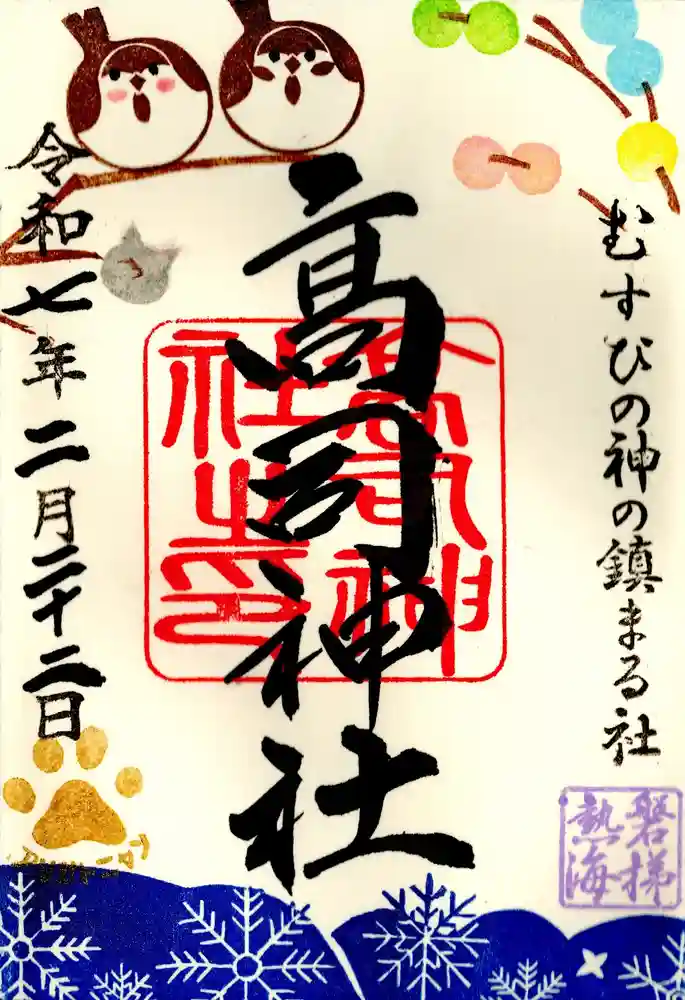 むすひの神の鎮まる社
高司神社
令和七年二月二十二日
高司神
社之印
磐梯
熱海